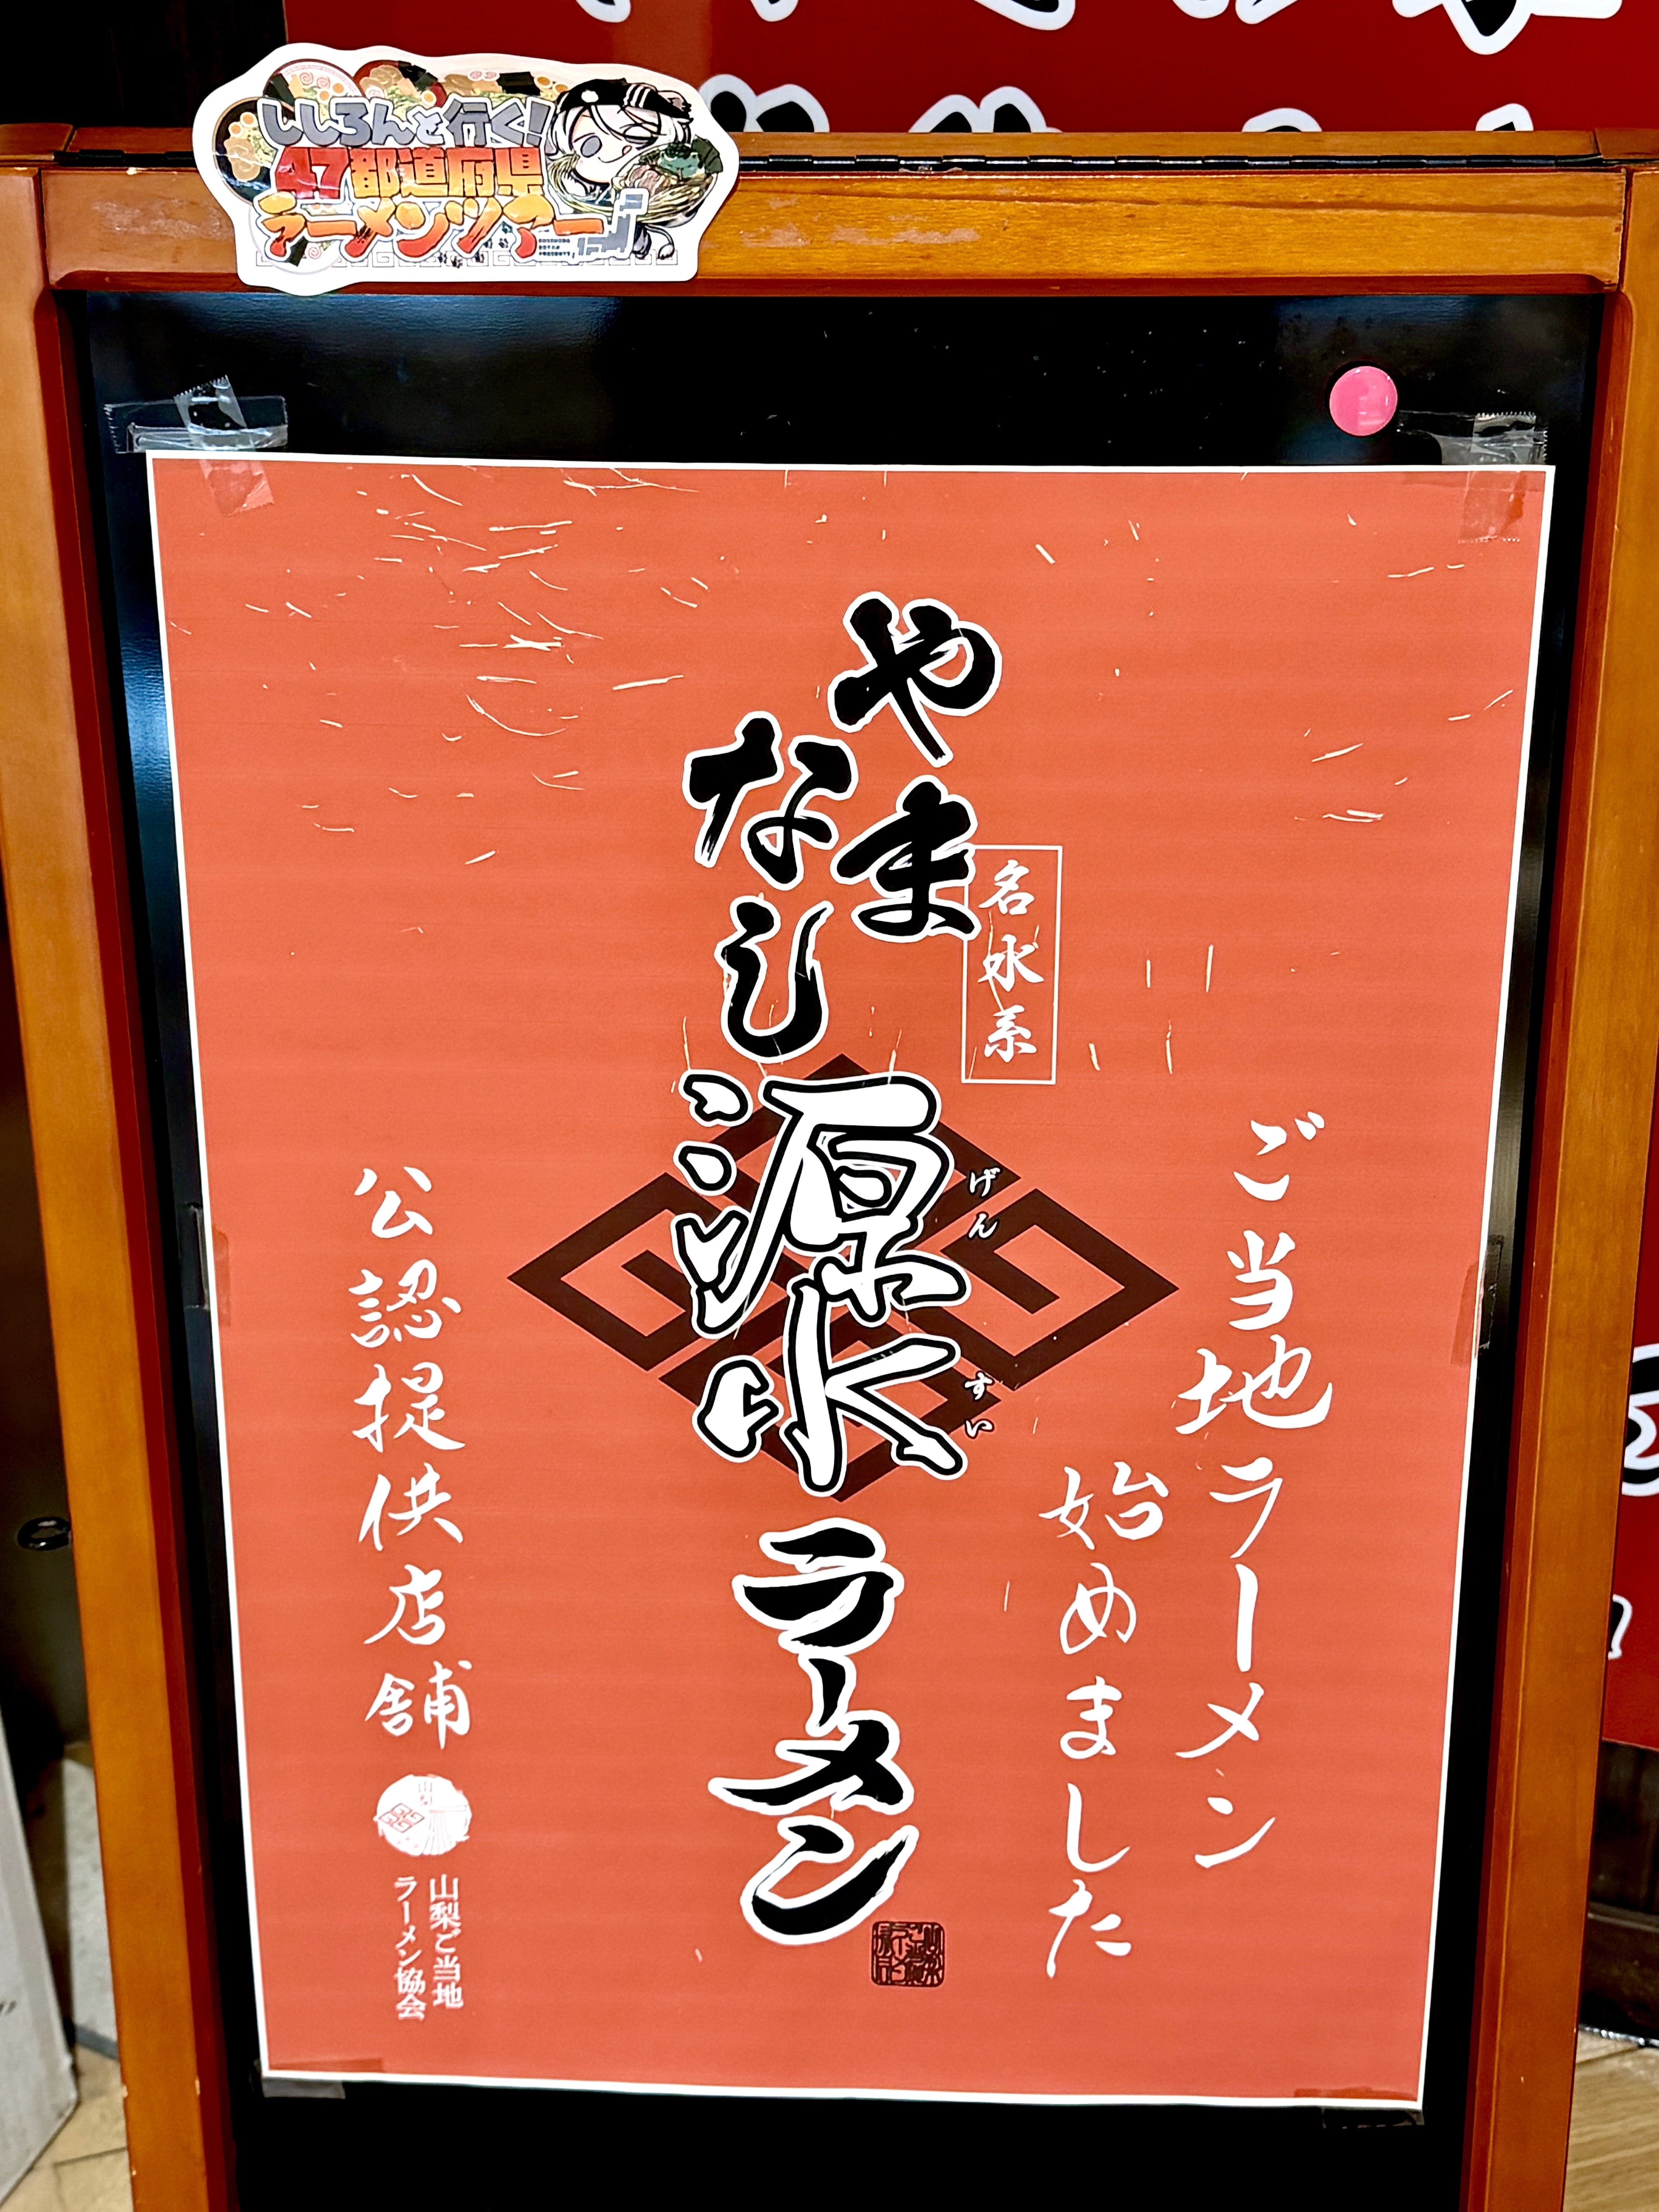 ししろんと行く!
47都道府県
ラーメンツアー
ご当地ラーメン
始めました
名水系
やまなし源水ラーメン
げんすい
公認提供店舗
山梨ご当地
ラーメン協会